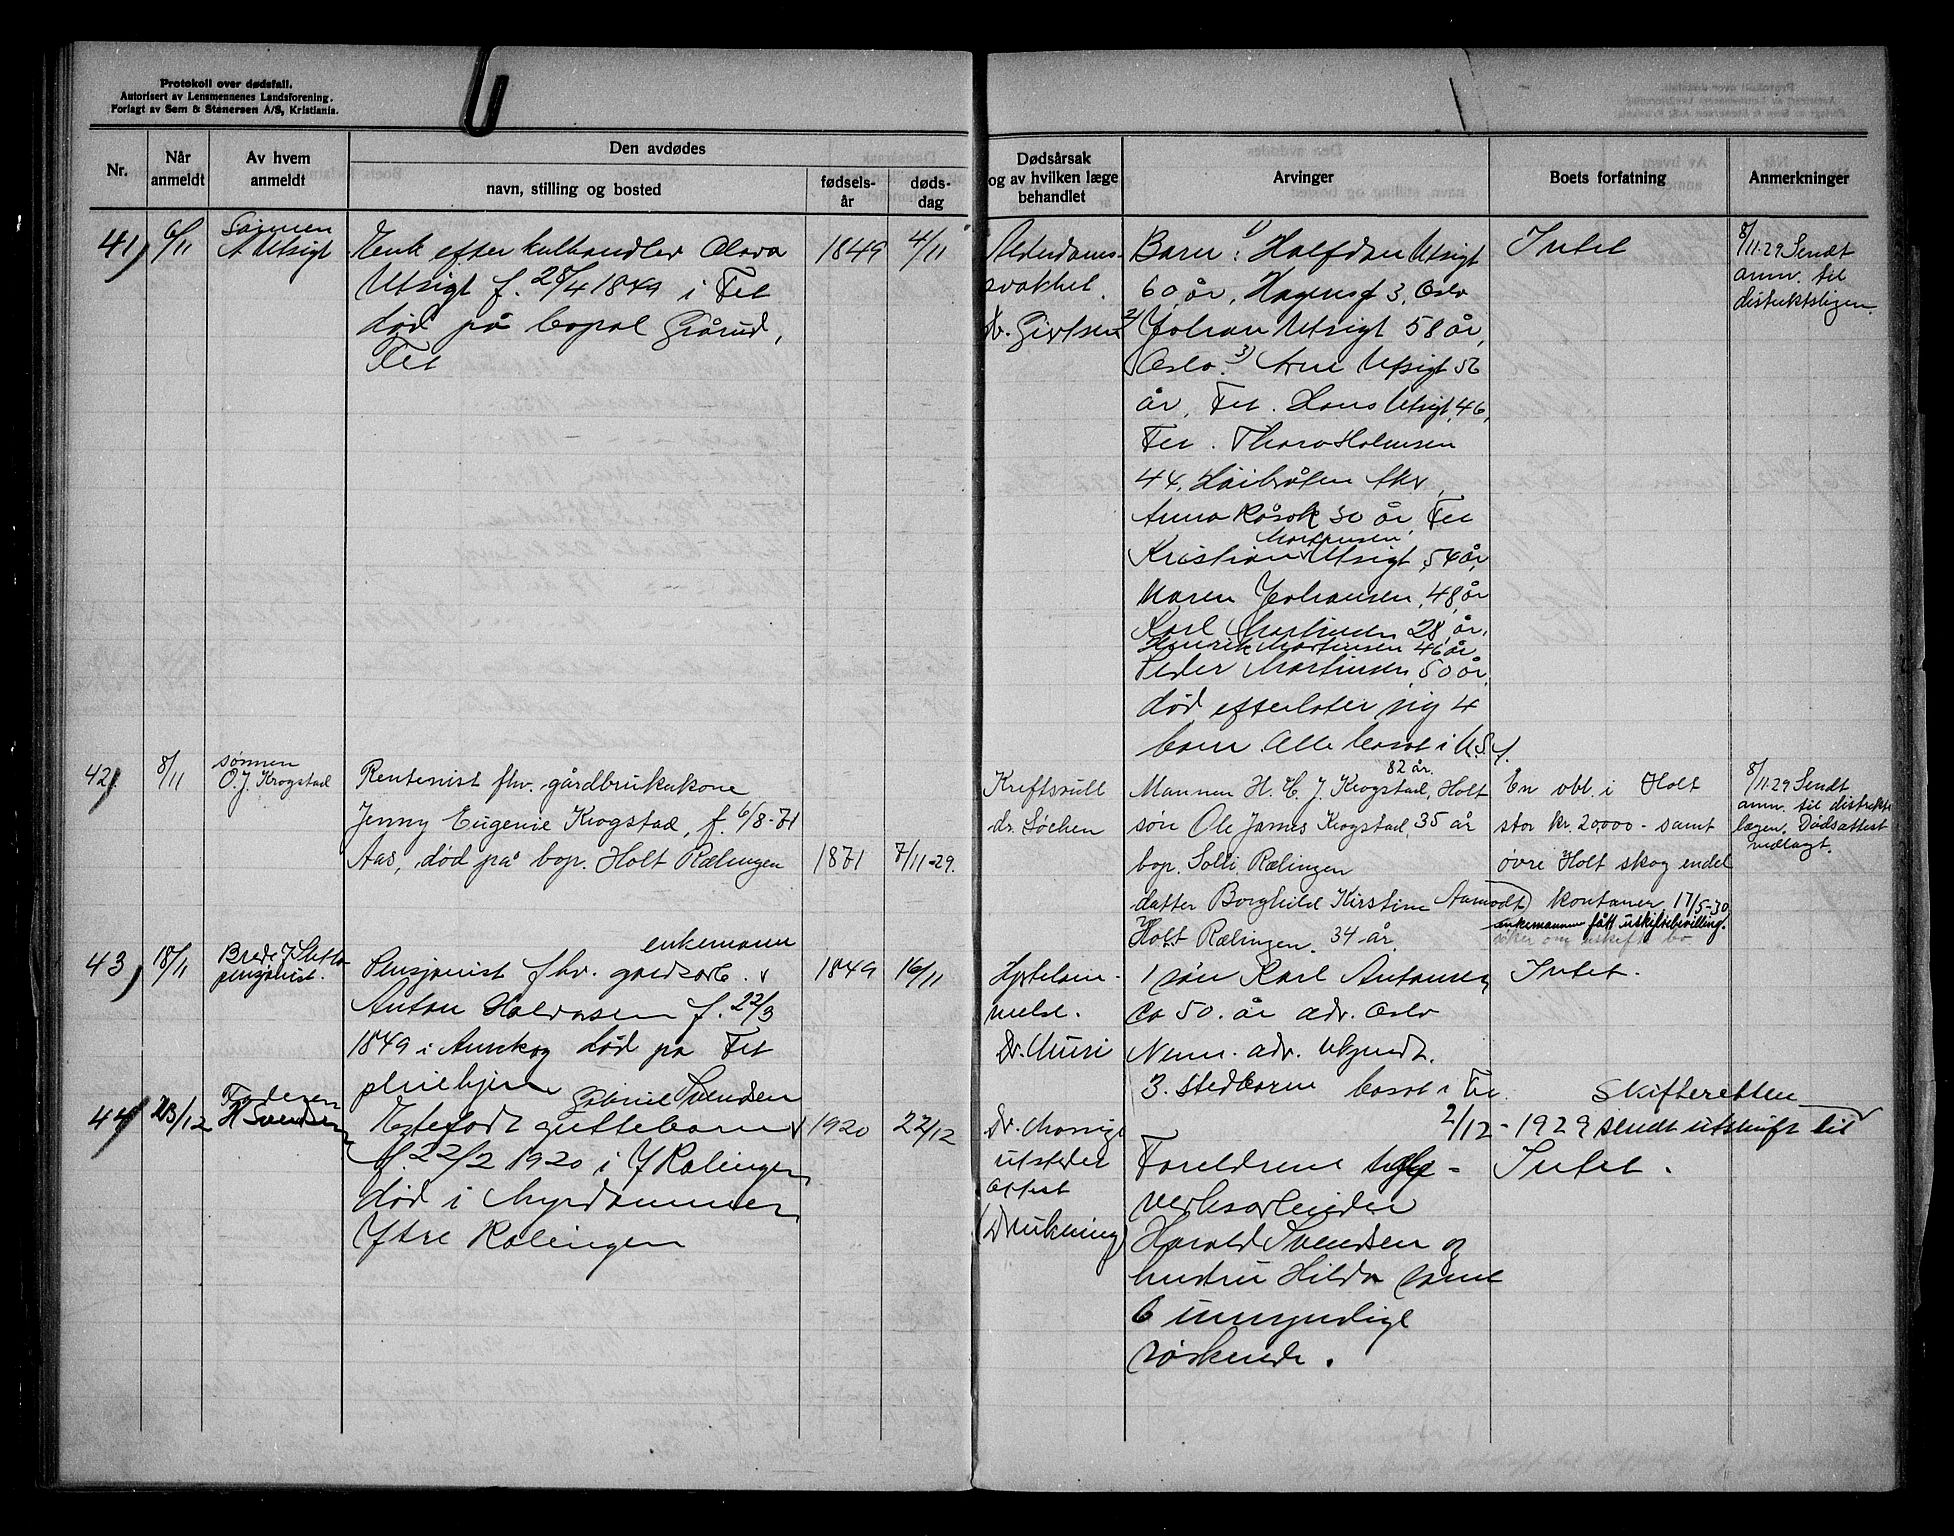 Protokoll over dødsfall.
Autorisert av Lensmennenes Landsforening.
Forlagt av Sem & Stenersen A/S, Kristiania.
Nr.
Når anmeldt
Av hvem anmeldt
Den avdødes
navn, stilling og bosted
fødsels-år
døds-dag
Dødsårsak og av hvilken læge behandlet
Arvinger
Boets forfatning
Anmerkninger
41)
6/11
Sønnen
A Utsigt
Enk efter kulhandler Olava
Utsigt f. 28/4 1849 i Fet
død på bopæl Gårud,
Fet
1849
4/11
Alderdoms-
svakhet.
Dr. Girtsen
Barn: 1) Halfdan Utsigt
60 år, Hagensgt 3, Oslo
2) Johan Utsigt 58 år,
Oslo. 3) Arne Utsigt 56
år, Fet. Hans Utsigt, 46,
Fet. Thora Holmsen
44, Høibråten Aker,
Anna Kåsok 30 år, Fet
Martinsen
Kristian Utsigt, 54 år,
Maren Johansen, 48, år
Karl Martinsen 28, år.
Henrik Martinsen 46 år
Peder Martinsen, 50 år,
død efterlater sig 4
barn. Alle bosat i
Intet
8/11.29 Sendt
anm. til
distriktslægen.
42)
8/11
sønnen
O. J. Krogstad
Rentenist fhv. gårdbrukakone
Jenny Eugenie Krogstad, f. 6/8-71
Aas, død på bop. Holt Rælingen
1871
7/11-29.
Kreftsvull
dr. Søehen
82 år.
Mannen H. C. J. Krogstad, Holt
søn Ole James Krogstad, 35 år
bop. Solli, Rælingen
datter Borghild Kirstine Aamodt
Holt Rælingen. 34 år.
En obl. i Holt
stor kr. 20,000 - samt
øvre Holt skog endel
kontaner 17/5-30
enkemannen fått uskiftebevilling.
søker om uskifte bo
8/11.29 Sendt
anm. til distrikts
lægen. Dødsattest
vedlagt.
43)
18/11
Brede J Sletta
pensjonist.
enkemann
Pensjonist fhv. gardsarb.
Anton Halvorsen f. 22/3
1849 i Aurskog død på Fet
pleiehjem
1849
16/11
Hjertelam-
melse.
Dr. Muri
1 søn Karl Antonsen
ca 50. år adr. Oslo
Nem. adr. ukjendt.
3. stedbarn bosat i Fet.
Intet.
44)
23/12
Faderen
H Svendsen
Gabriel Svendsen
Egtefødt guttebarn
f. 22/2 1920 i Y Rælingen
død i Myrdammen
Ytre Rælingen
1920
22/12
Dr.
utsteder
attest
(Drukning)
Skifteretten
2/12 - 1929 sendt utskrift til
Foreldrene
verksarbeider
Harald Svendsen og
hustru Hilda samt
6 umyndige
søskende.
Intet.